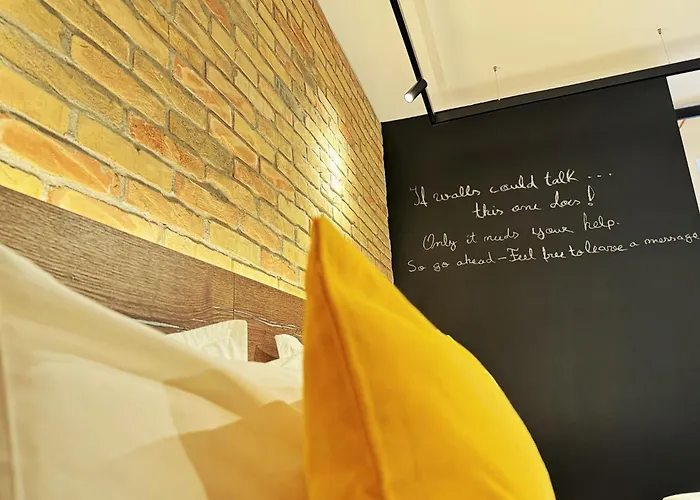 If walls could talk ...
this one does!
Only it needs your help.
So go ahead – Feel free to leave a message